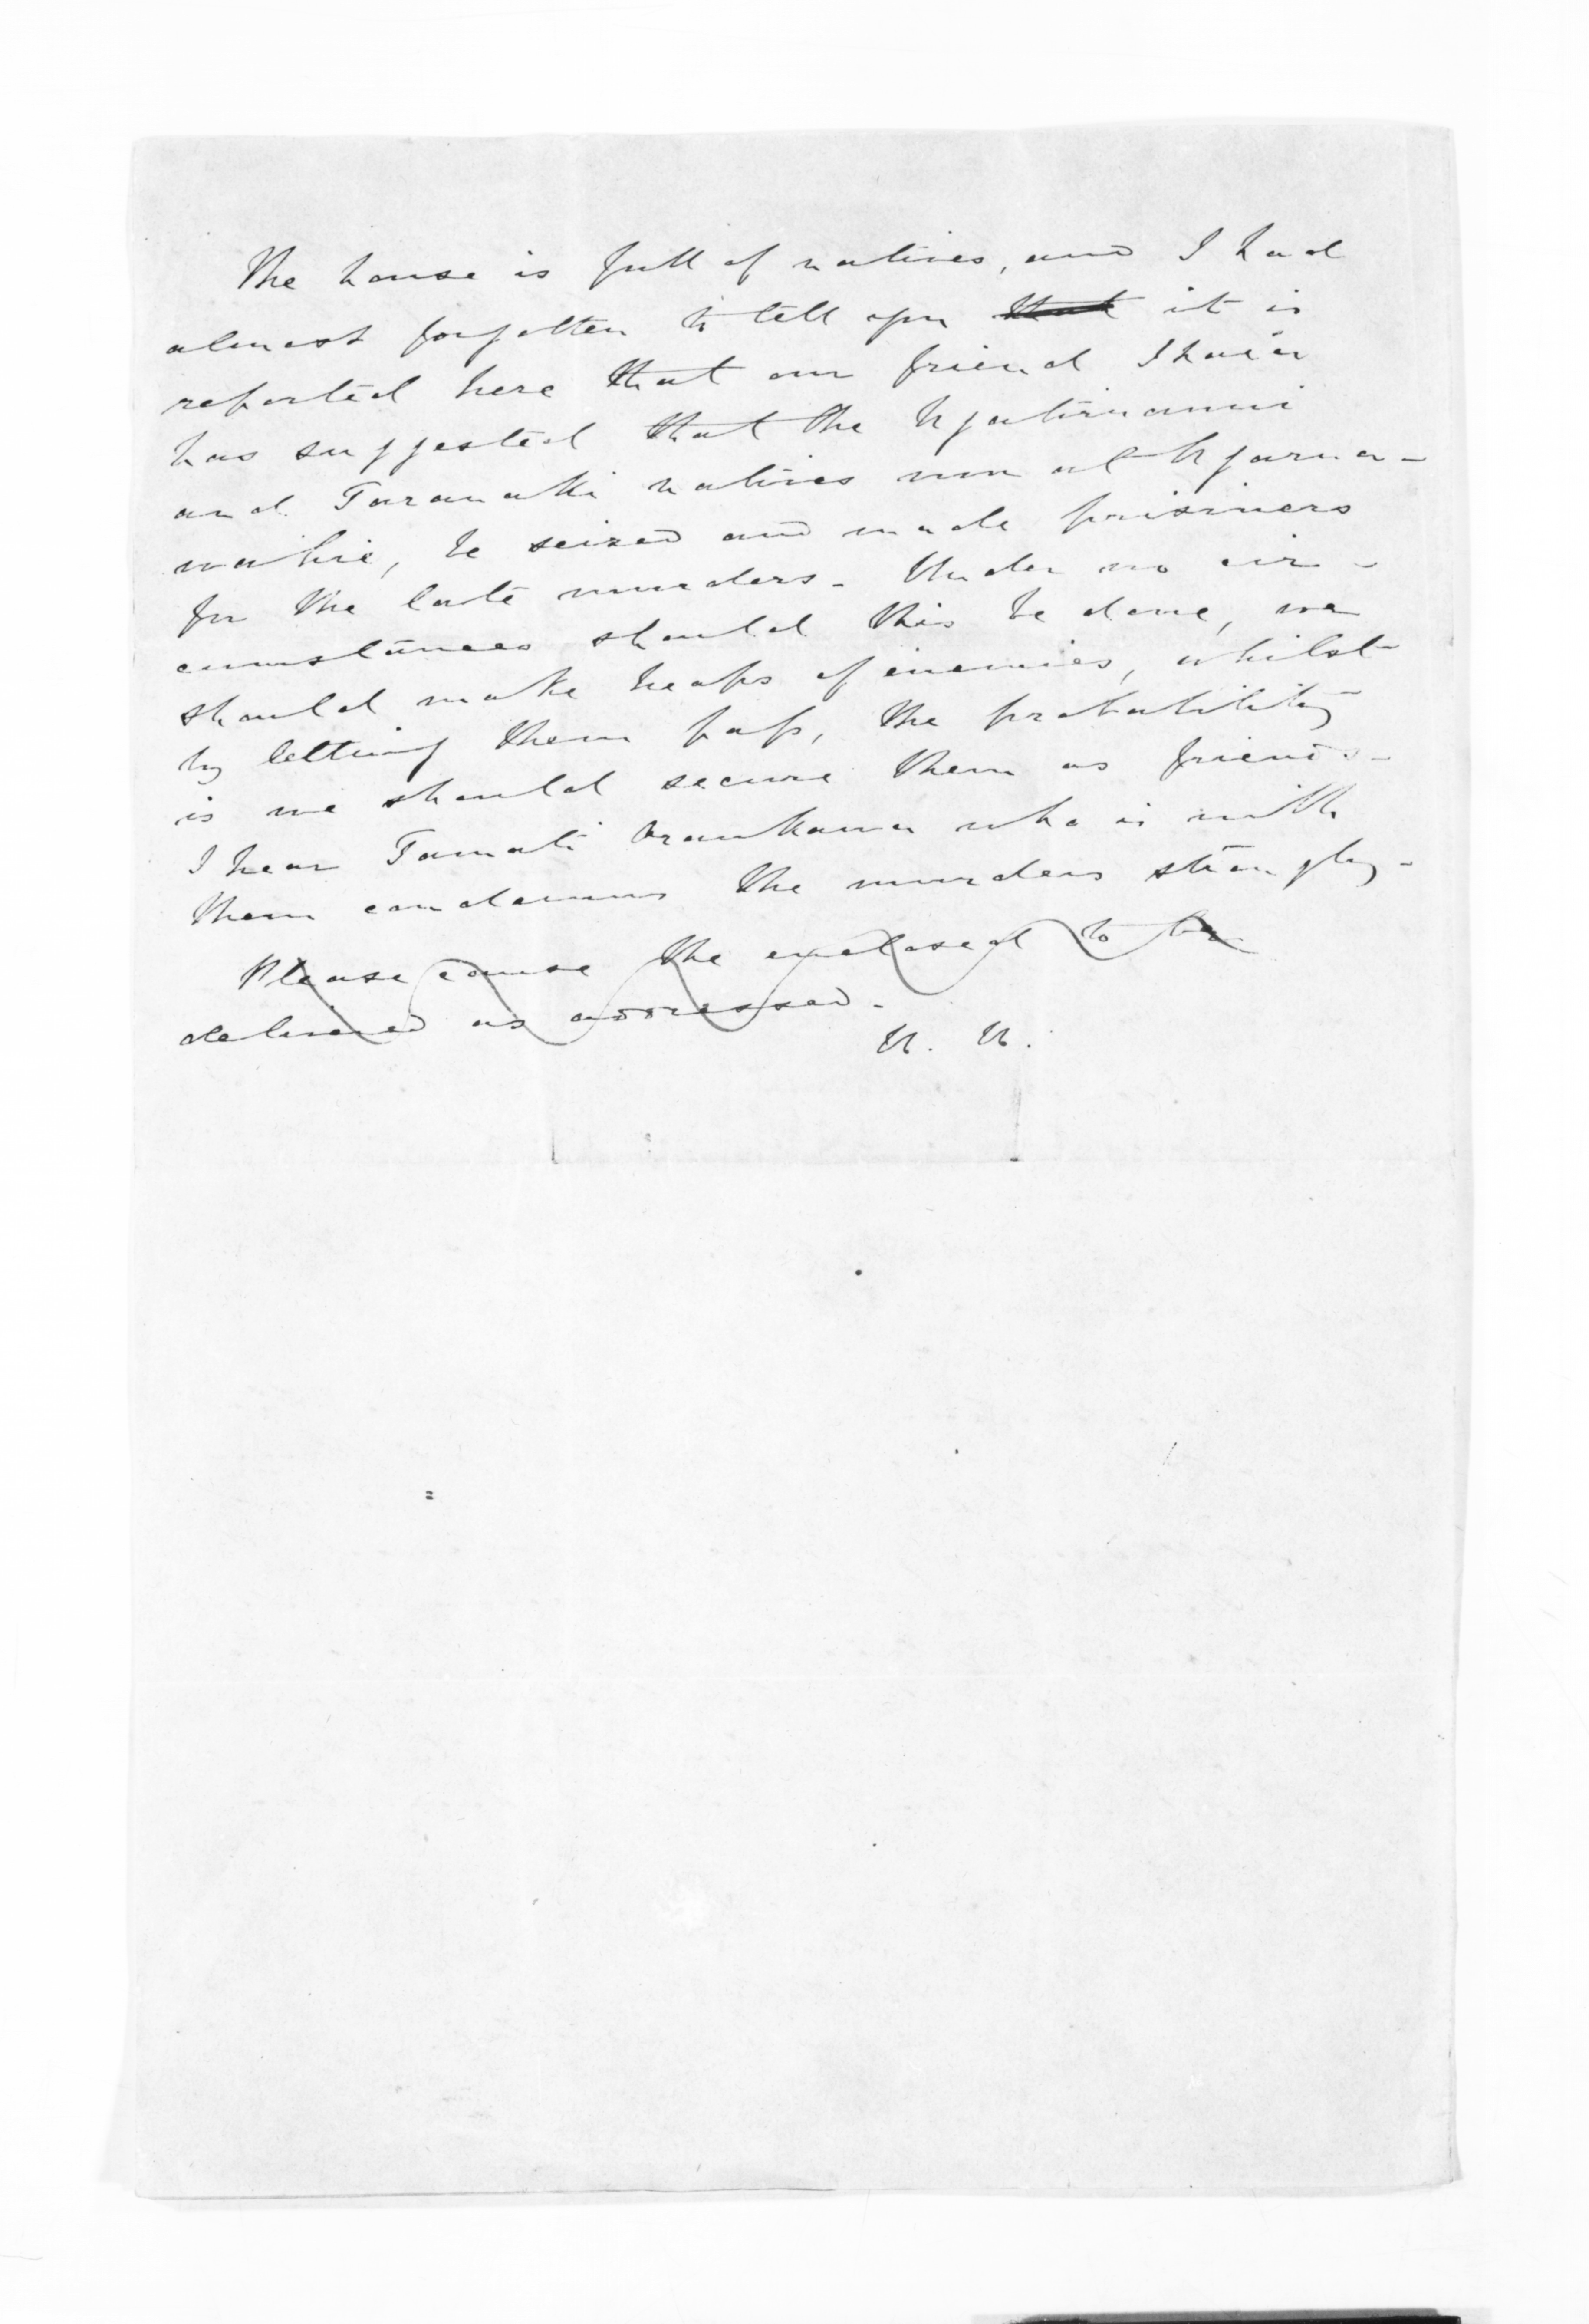 The house is full of natives, and I had
almost forgotten to tell you that it is
reported here that our friend Ihaia
has suggested that the Ngatiruanui
and Taranaki natives now at Ngarua-
wahie, be seized and made prisiners
for the late murders - Under no cir-
cumstances should this be done, we
should make heaps of enemies, whilst
by letting them pass, the probability
is we should secure them as friends -
I hear Tamati who is with
them condemns the murders strongly -
Please cause the enclosed to be
delivered as addressed -